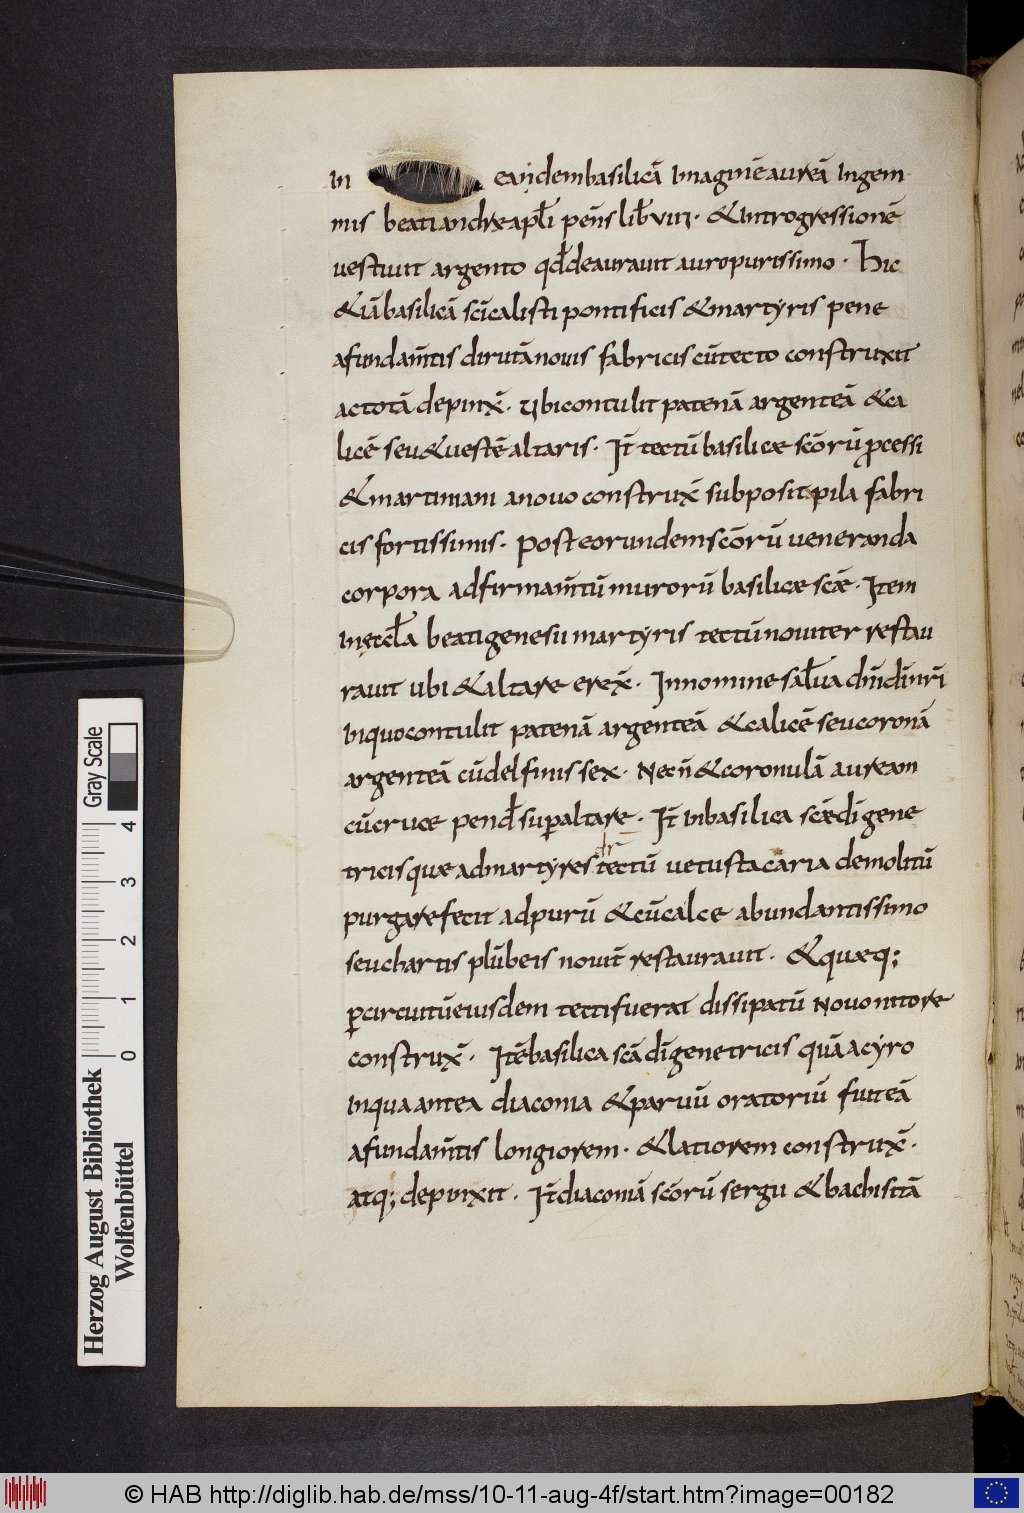 in eandem basilicā imaginē aureā in gem
mis beati andreæ apl̄i pens̄ lib̄ viii · & introgressionē
vestivit argento qd̄ deauravit auro purissimo · hic
& iā basilicā sc̄i calisti pontificis & martyris pene
a fundam̄tis dirutā novis fabricis cū tecto construxit
ac totā depinx̄ · ubi contulit patenā argenteā & ca
licē seu & vestē altaris · it̄ tectū basilicæ sc̄orū pcessi
& martiniani a novo construx̄ subposit pila fabri
cis fortissimis · post eorundem sc̄orū veneranda
corpora ad firmam̄tū murorū basilicæ scæ · item
in ęccl̄a beati genesii martyris tectū noviter restau
ravit ubi & altare erex̄ · in nomine salv̄a dn̄i di n̄ri
in quo contulit patenā argenteā & calicē seu coronā
argenteā cū delfinis sex · necn̄ & coronulā auream
cū cruce pend̄ sup altare · it̄ in basilica scæ di gene
tricis quæ ad martyres dr̄ tectū vetusta caria demolitū
purgare fecit ad purū & cū calce abundantissimo
seu chartis plūbeis novit̄ restauravit · & quæq;
p circuitū eiusdem tecti fuerat dissipatū novo nitore
construx̄ · itē basilica scā di genetricis quā a cyro
in qua antea diaconia & parvū oratoriū fuit eā
a fundam̄tis longiorem · & latiorem construx̄ ·
atq; depinxit · it̄ diaconiā sc̄orū sergii & bachi sitā
Gray Scale
0 1 2 3 4
Herzog August Bibliothek
Wolfenbüttel
© HAB http://diglib.hab.de/mss/10-11-aug-4f/start.htm?image=00182